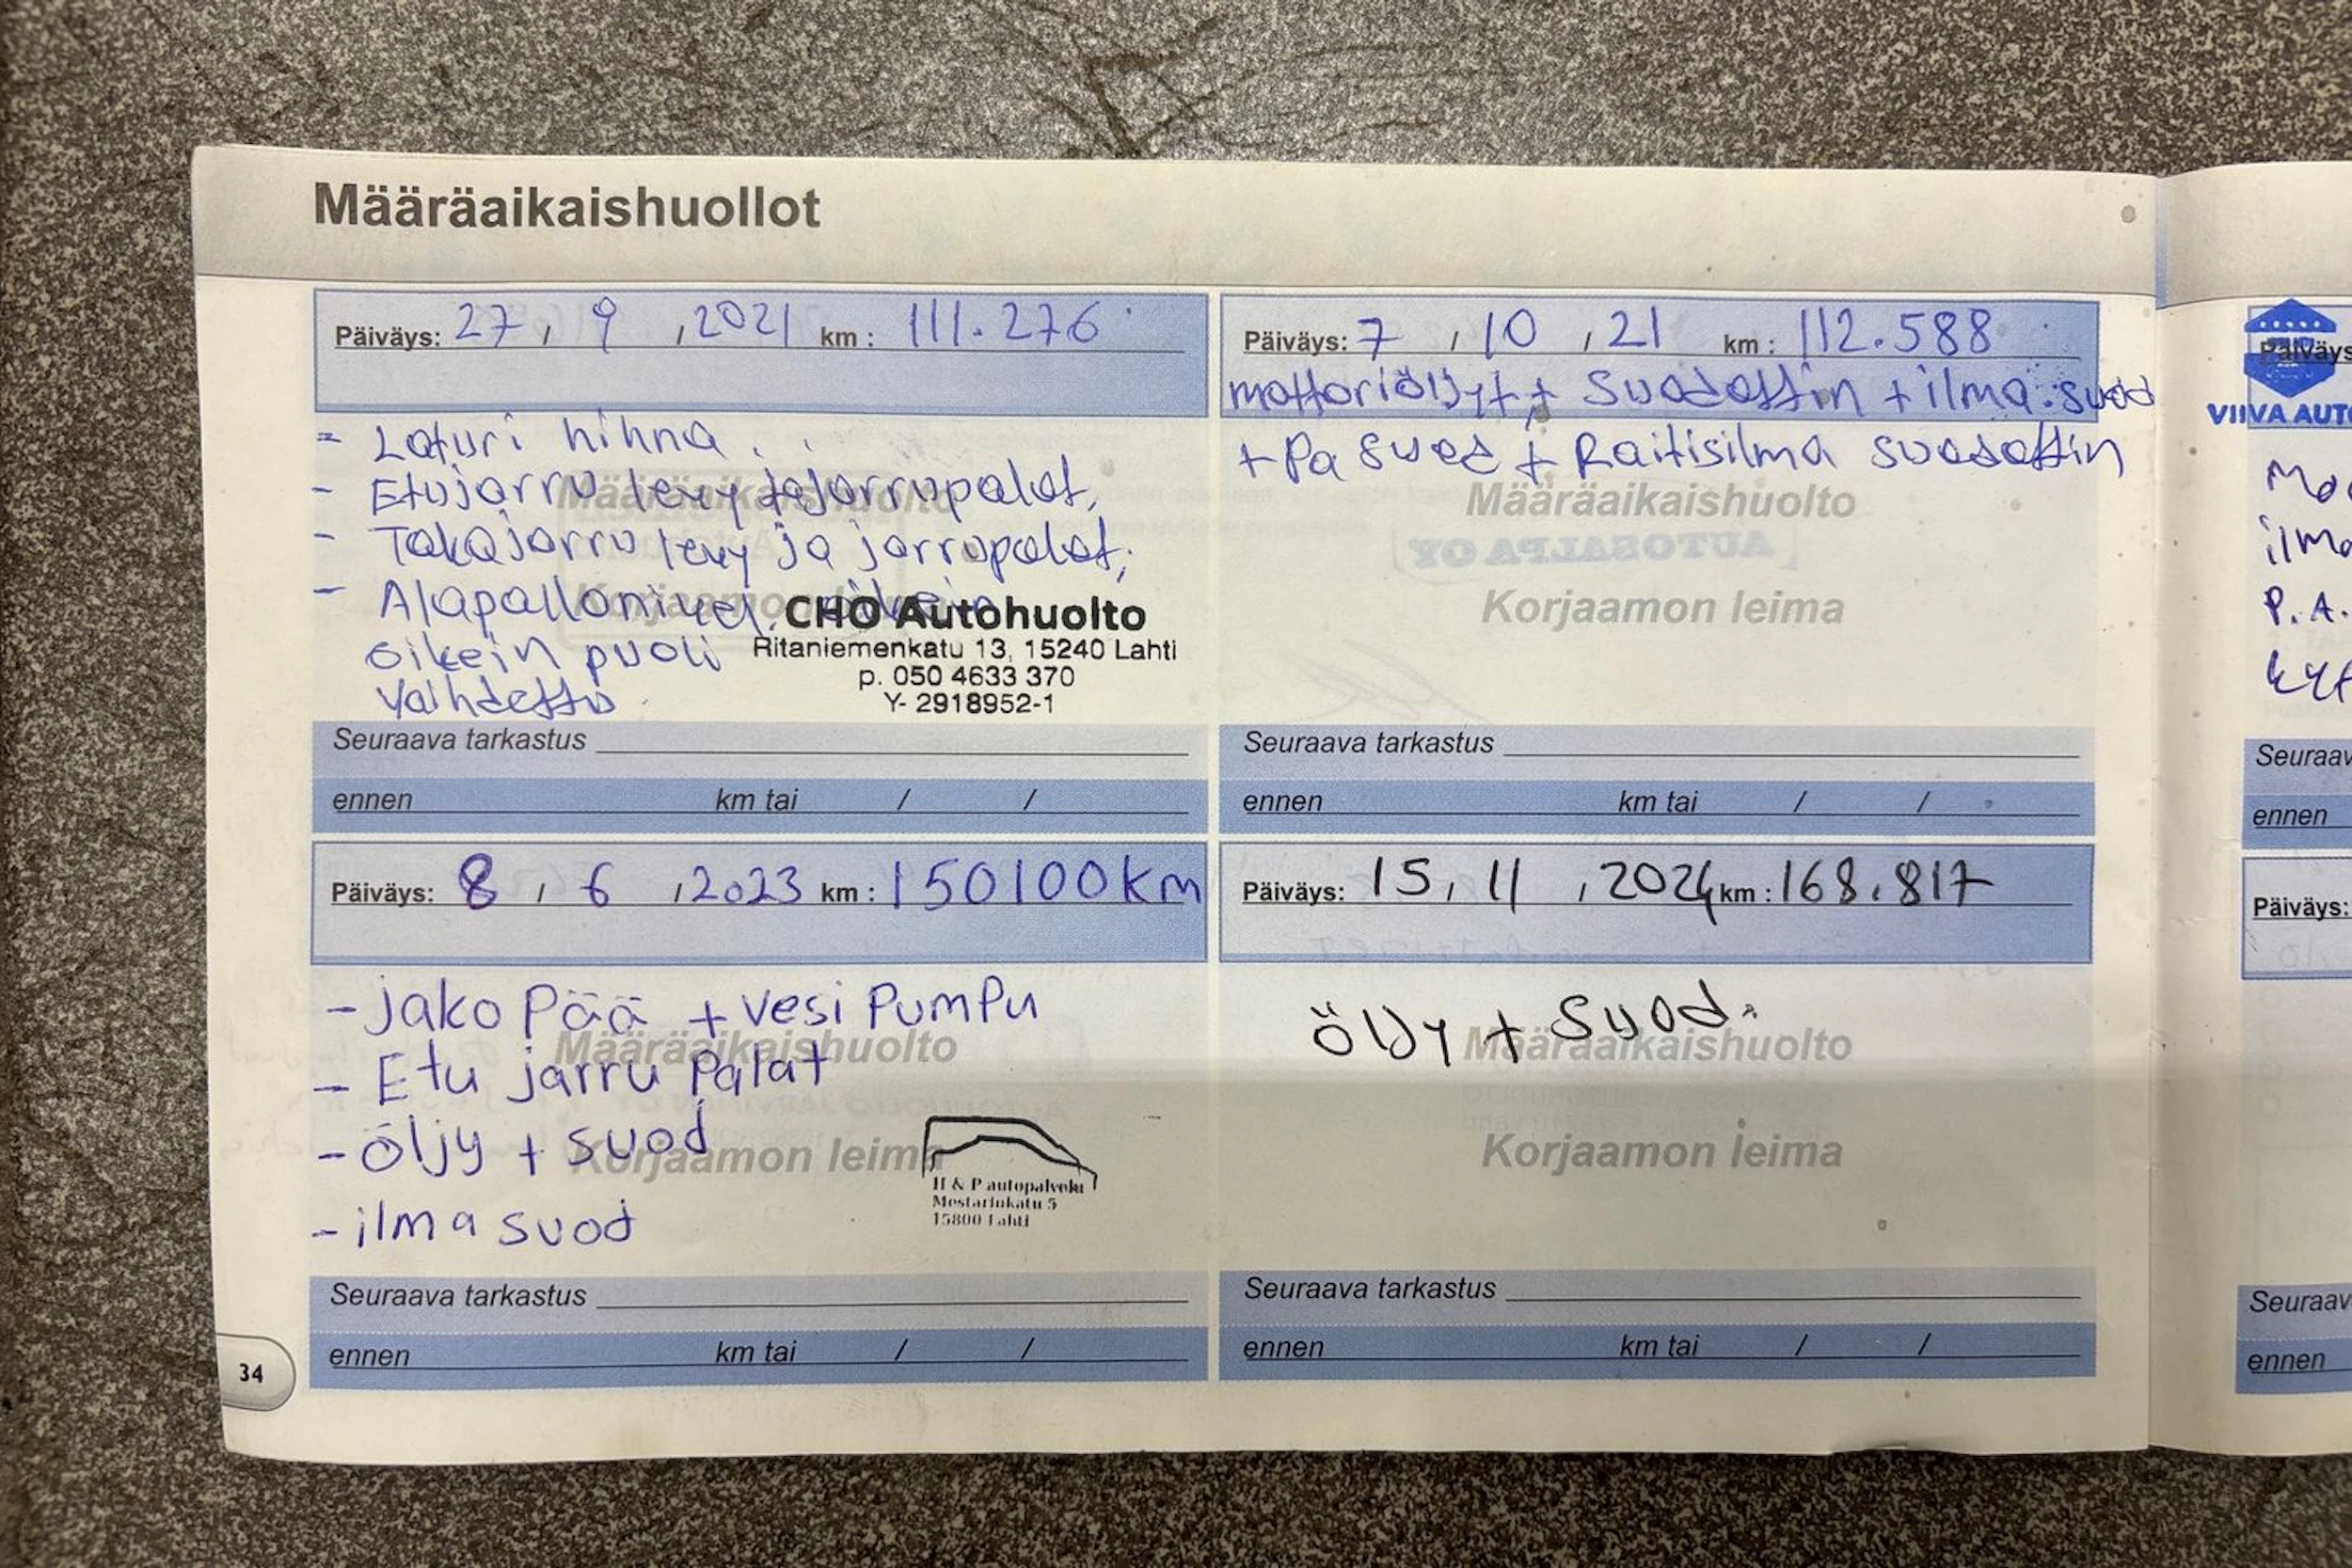 Määräaikaishuollot
Päiväys: 27 / 9 / 2021 km : 111.276
- Laturi hihna
- Etujarru levy ja jarrupalat,
Määräaikaishuolto
- Takajarru levy ja jarrupalat,
- Alapallonivel. oikein
Korjaamon leima
oikein puoli
vaihdettu
CHO Autohuolto
Ritaniemenkatu 13, 15240 Lahti
p. 050 4633 370
Y- 2918952-1
Seuraava tarkastus
ennen km tai / /
Päiväys: 7 / 10 / 21 km : 112.588
mottoriöljyt + Suodattin + ilma.suod
+ Pa suod + Raitisilma suodattin
Määräaikaishuolto
AUTOSALPA OY
Korjaamon leima
Seuraava tarkastus
ennen km tai / /
Päiväys: 8 / 6 / 2023 km : 150100km
- jako Pää + vesi PumPu
Määräaikaishuolto
- Etu jarru Palat
- öljy + suod
Korjaamon leima
- ilma suod
H & P autopalvelu
Mestarinkatu 5
15800 Lahti
Seuraava tarkastus
ennen km tai / /
Päiväys: 15 / 11 / 2024 km : 168.817
öljy + Suod.
Määräaikaishuolto
Korjaamon leima
Seuraava tarkastus
ennen km tai / /
34
Päiväys
VIIVA AUTO
ilma
P.A.
Seuraav
ennen
Päiväys:
Seuraav
ennen